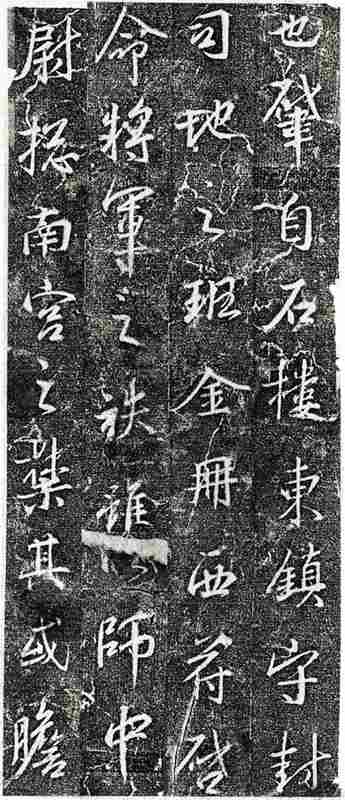 也肇自石樓東鎮守封
司地之班金冊西苻啓
命將軍之袟雖師中
尉揔南宮之集其或瞻